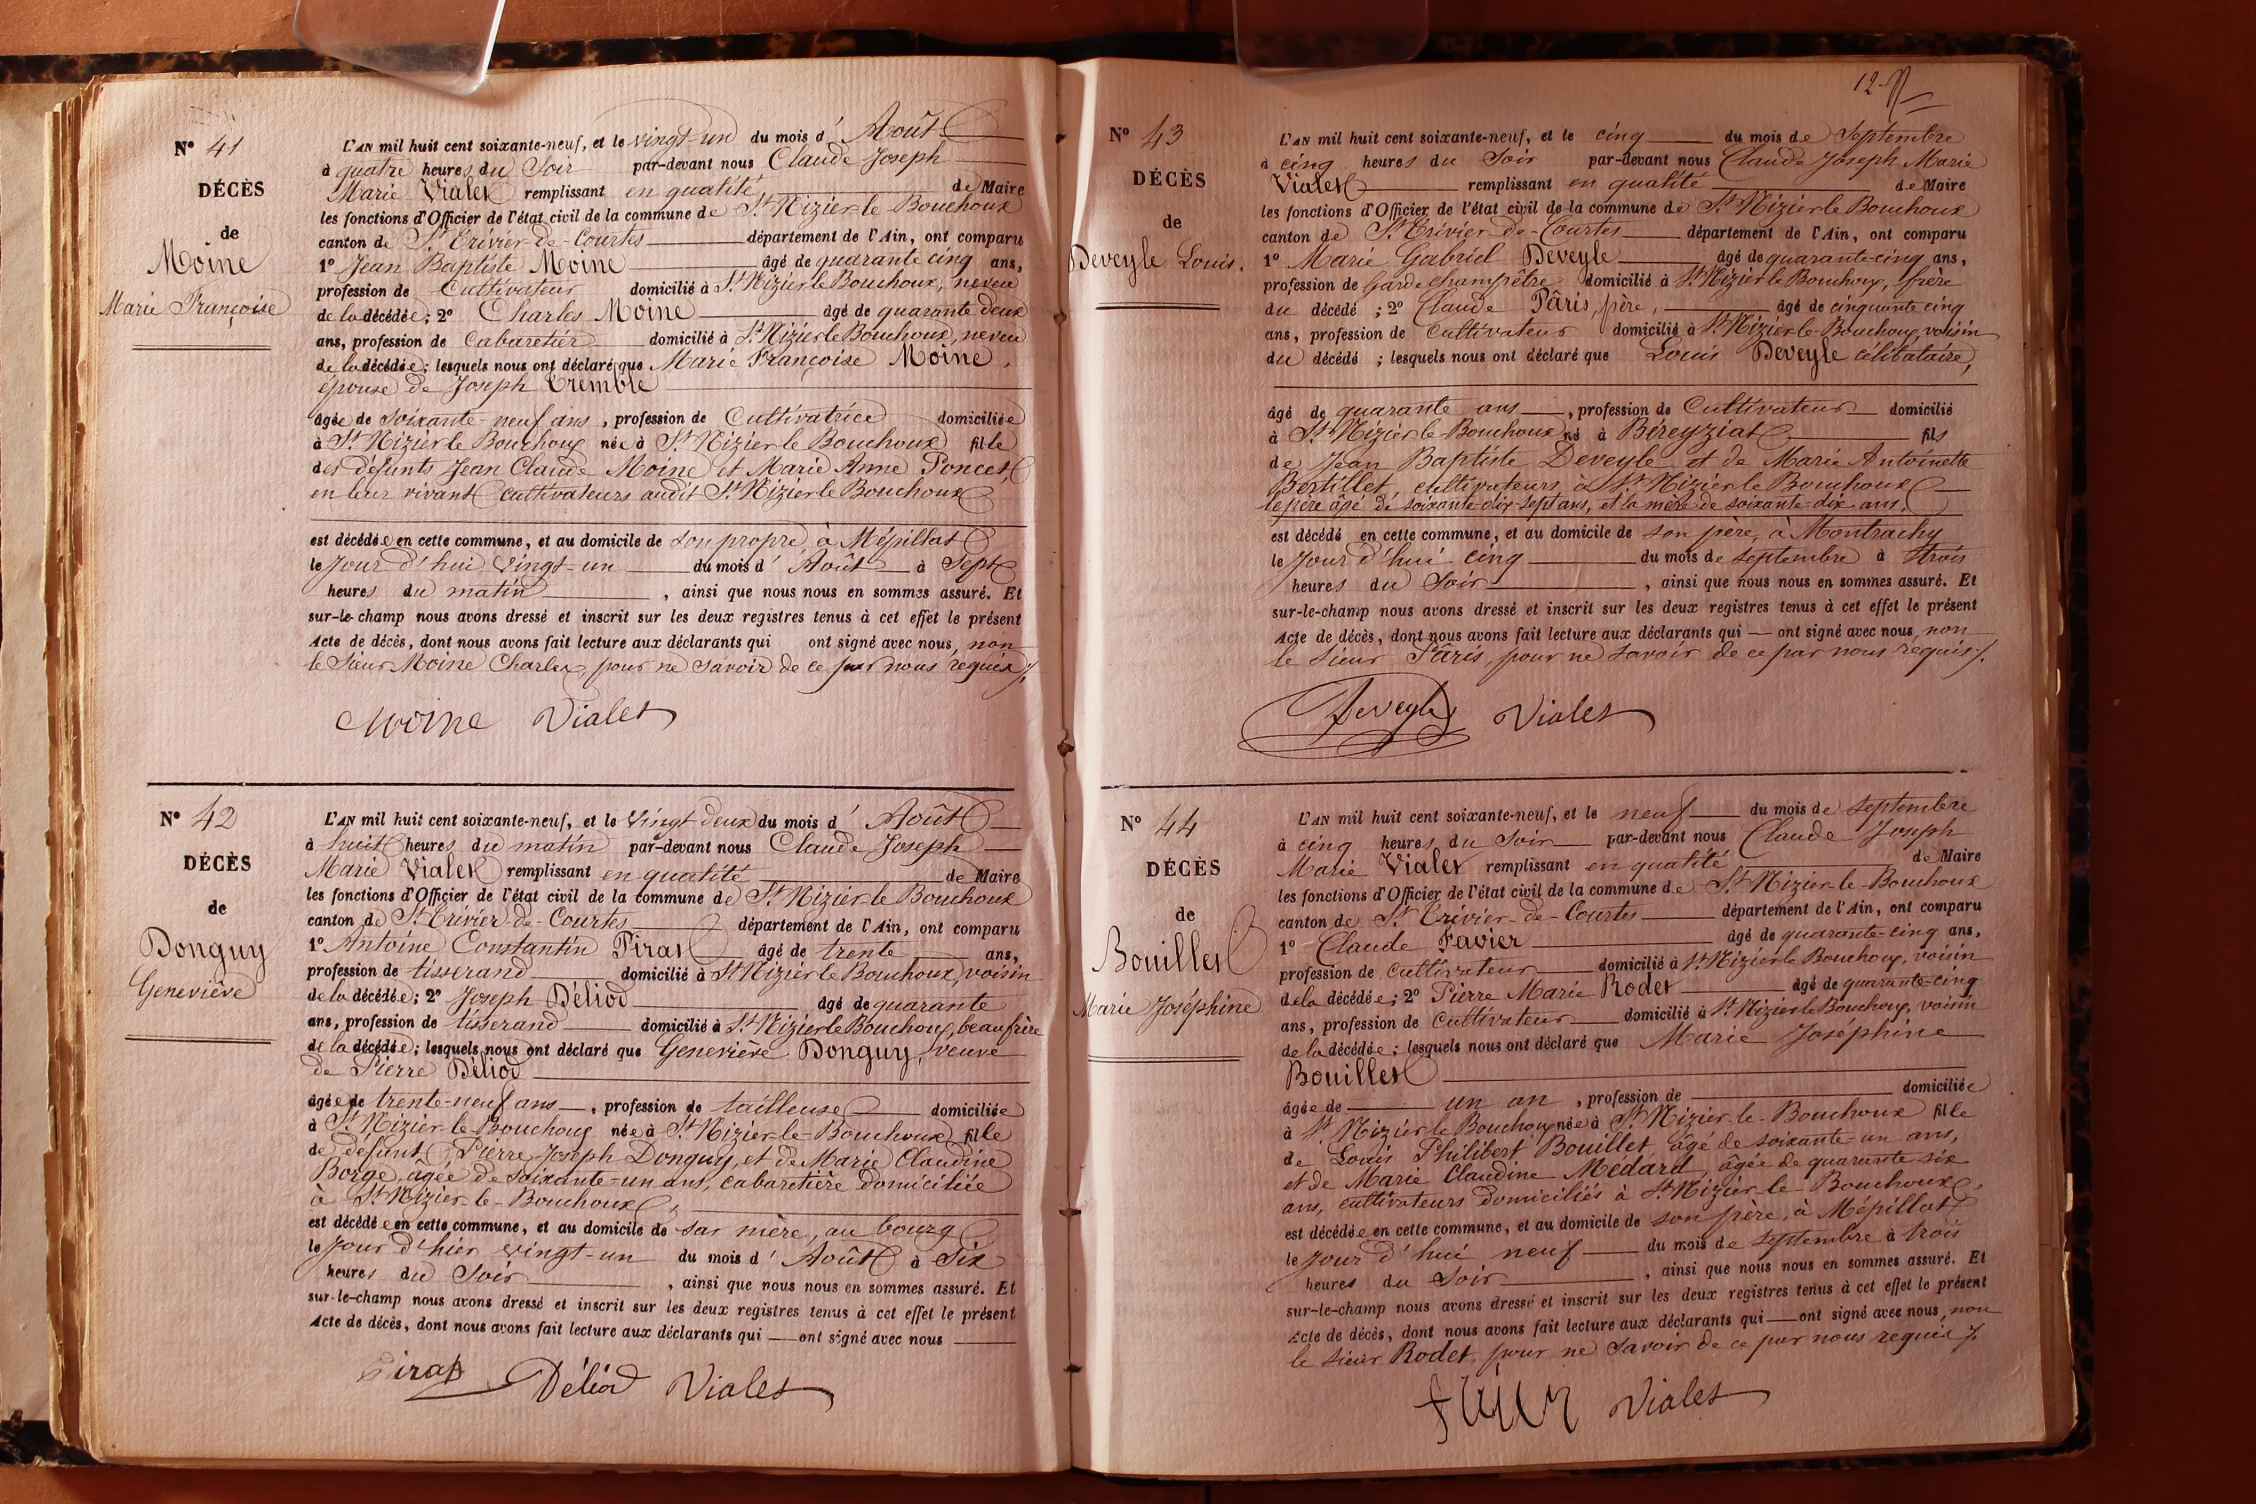 N° 41
DÉCÈS
de
Moine
Marie Françoise
L'AN mil huit cent soixante-neuf, et le vingt-un du mois d' Août
à quatre heures du Soir par-devant nous Claude Joseph
Marie Vialet remplissant en qualité de Maire
les fonctions d'Officier de l'état civil de la commune de St Nizier-le Bouchoux
canton de St Trivier-de-Courtes département de l'Ain, ont comparu
1° Jean Baptiste Moine âgé de quarante cinq ans,
profession de Cultivateur domicilié à St Nizier le Bouchoux, neveu
de la décédée; 2° Charles Moine âgé de quarante deux
ans, profession de Cabaretier domicilié à St Nizier le Bouchoux, neveu
de la décédée; lesquels nous ont déclaré que Marie Françoise Moine,
épouse de Joseph Tremble
âgée de soixante-neuf ans, profession de Cultivatrice domiciliée
à St Nizier le Bouchoux née à St Nizier le Bouchoux fille
des défunts Jean Claude Moine et Marie Anne Poncet,
en leur vivant cultivateurs audit St Nizier le Bouchoux
est décédée en cette commune, et au domicile de son propre, à Mépillat
le Jour d'hui vingt-un du mois d' Août à Sept
heures du matin, ainsi que nous nous en sommes assuré. Et
sur-le-champ nous avons dressé et inscrit sur les deux registres tenus à cet effet le présent
Acte de décès, dont nous avons fait lecture aux déclarants qui ont signé avec nous, non
le Sieur Moine Charles, pour ne savoir de ce par nous requis /.
Moine Vialet
N° 42
DÉCÈS
de
Donguy
Geneviève
L'AN mil huit cent soixante-neuf, et le vingt deux du mois d' Août
à huit heures du matin par-devant nous Claude Joseph
Marie Vialet remplissant en qualité de Maire
les fonctions d'Officier de l'état civil de la commune de St Nizier-le Bouchoux
canton de St Trivier-de-Courtes département de l'Ain, ont comparu
1° Antoine Constantin Pirat âgé de trente ans,
profession de tisserand domicilié à St Nizier le Bouchoux, voisin
de la décédée; 2° Joseph Déliod âgé de quarante
ans, profession de tisserand domicilié à St Nizier le Bouchoux, beaufrère
de la décédée; lesquels nous ont déclaré que Geneviève Donguy, veuve
de Pierre Déliod
âgée de trente-neuf ans, profession de tailleuse domiciliée
à St Nizier-le Bouchoux née à St Nizier-le-Bouchoux fille
de défunt Pierre Joseph Donguy, et de Marie Claudine
Borge, âgée de soixante-un ans, cabaretière domiciliée
à St Nizier-le-Bouchoux,
est décédée en cette commune, et au domicile de sa mère, au bourg
le Jour d'hier vingt-un du mois d' Août à Six
heures du Soir, ainsi que nous nous en sommes assuré. Et
sur-le-champ nous avons dressé et inscrit sur les deux registres tenus à cet effet le présent
Acte de décès, dont nous avons fait lecture aux déclarants qui ont signé avec nous
Pirat Déliod Vialet
12
N° 43
DÉCÈS
de
Deveyle Louis.
L'AN mil huit cent soixante-neuf, et le cinq du mois de Septembre
à cinq heures du Soir par-devant nous Claude Joseph Marie
Vialet remplissant en qualité de Maire
les fonctions d'Officier de l'état civil de la commune de St Nizier le Bouchoux
canton de St Trivier-de-Courtes département de l'Ain, ont comparu
1° Marie Gabriel Deveyle âgé de quarante-cinq ans,
profession de Garde champêtre domicilié à St Nizier-le Bouchoux, frère
du décédé ; 2° Claude Pâris, père, âgé de cinquante cinq
ans, profession de Cultivateur domicilié à St Nizier-le-Bouchoux, voisin
du décédé ; lesquels nous ont déclaré que Louis Deveyle célibataire,
âgé de quarante ans, profession de Cultivateur domicilié
à St Nizier-le Bouchoux né à Béreyziat fils
de Jean Baptiste Deveyle et de Marie Antoinette
Bertillet, cultivateurs à St Nizier le Bouchoux
le père âgé de soixante-dix-sept ans, et la mère de soixante-dix ans,
est décédé en cette commune, et au domicile de son père, à Montrachy
le Jour d'hui cinq du mois de septembre à trois
heures du Soir, ainsi que nous nous en sommes assuré. Et
sur-le-champ nous avons dressé et inscrit sur les deux registres tenus à cet effet le présent
Acte de décès, dont nous avons fait lecture aux déclarants qui ont signé avec nous, non
le sieur Pâris, pour ne savoir de ce par nous requis /.
Deveyle Vialet
N° 44
DÉCÈS
de
Bouillet
Marie Joséphine
L'AN mil huit cent soixante-neuf, et le neuf du mois de septembre
à cinq heures du Soir par-devant nous Claude Joseph
Marie Vialet remplissant en qualité de Maire
les fonctions d'Officier de l'état civil de la commune de St Nizier-le-Bouchoux
canton de St Trivier-de-Courtes département de l'Ain, ont comparu
1° Claude Favier âgé de quarante-cinq ans,
profession de cultivateur domicilié à St Nizier le Bouchoux, voisin
de la décédée; 2° Pierre Marie Rodet âgé de quarante-cinq
ans, profession de Cultivateur domicilié à St Nizier le Bouchoux, voisin
de la décédée; lesquels nous ont déclaré que Marie Joséphine
Bouillet
âgée de un an, profession de domiciliée
à St Nizier le Bouchoux née à St Nizier-le-Bouchoux fille
de Louis Philibert Bouillet, âgé de soixante-un ans,
et de Marie Claudine Médard, âgée de quarante six
ans, cultivateurs domiciliés à St Nizier-le Bouchoux,
est décédée en cette commune, et au domicile de son père, à Mépillat
le Jour d'hui neuf du mois de septembre à trois
heures du Soir, ainsi que nous nous en sommes assuré. Et
sur-le-champ nous avons dressé et inscrit sur les deux registres tenus à cet effet le présent
Acte de décès, dont nous avons fait lecture aux déclarants qui ont signé avec nous, non
le sieur Rodet, pour ne savoir de ce par nous requis /.
Vialet